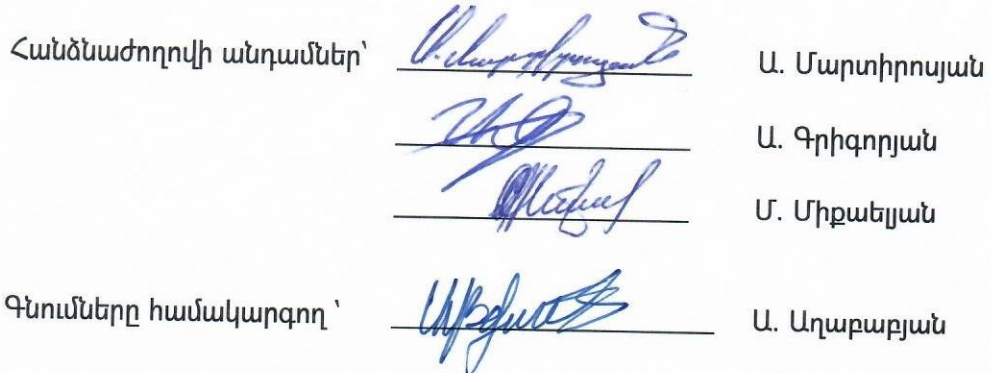 Հանձնաժողովի անդամներ՝ Ա. Մարտիրոսյան
Ա. Գրիգորյան
Մ. Միքաելյան
Գնումները համակարգող ՝ Ա. Աղաբաբյան